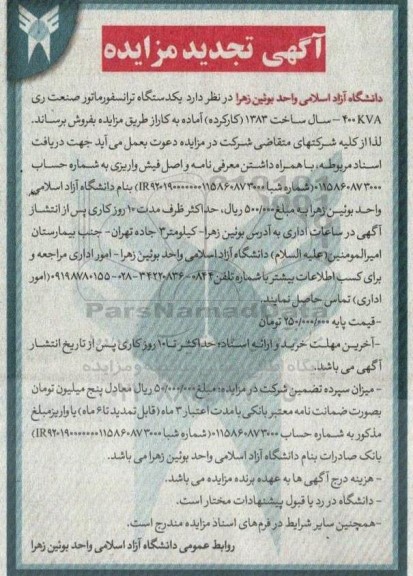 آگهی تجدید مزایده
دانشگاه آزاد اسلامی واحد بوئین زهرا در نظر دارد یکدستگاه ترانسفورماتور صنعت ری
۴۰۰ KVA – سال ساخت ۱۳۸۳ (کارکرده) آماده به کار از طریق مزایده بفروش برساند.
لذا از کلیه شرکتهای متقاضی شرکت در مزایده دعوت بعمل می آید جهت دریافت
اسناد مربوطه، با همراه داشتن معرفی نامه و اصل فیش واریزی به شماره حساب
۰۱۱۵۸۶۰۸۷۳۰۰۰ (شماره شبا IR۹۲۰۱۹۰۰۰۰۰۰۰۰۱۱۵۸۶۰۸۷۳۰۰۰) بنام دانشگاه آزاد اسلامی
واحد بوئین زهرا به مبلغ ۵۰۰/۰۰۰ ریال، حداکثر ظرف مدت ۱۰ روز کاری پس از انتشار
آگهی در ساعات اداری به آدرس بوئین زهرا- کیلومتر ۳ جاده تهران- جنب بیمارستان
امیرالمومنین (علیه السلام) دانشگاه آزاد اسلامی واحد بوئین زهرا - امور اداری مراجعه و
برای کسب اطلاعات بیشتر با شماره تلفن ۰۸۴۴-۳۴۲۲۰۸۳۶-۰۲۸-۰۹۱۹۸۷۸۰۱۵۵ (امور
اداری) تماس حاصل نمایند.
-قیمت پایه ۲۵۰/۰۰۰/۰۰۰ تومان
ParsNamadData
-آخرین مهلت خرید و ارائه اسناد: حداکثر تا ۱۰ روز کاری پس از تاریخ انتشار
آگهی می باشد.
- میزان سپرده تضمین شرکت در مزایده: مبلغ ۵۰/۰۰۰/۰۰۰ ریال معادل پنج میلیون تومان
بصورت ضمانت نامه معتبر بانکی با مدت اعتبار ۳ ماه (قابل تمدید تا ۶ ماه) یا واریز مبلغ
مذکور به شماره حساب ۰۱۱۵۸۶۰۸۷۳۰۰۰ (شماره شبا IR۹۲۰۱۹۰۰۰۰۰۰۰۰۱۱۵۸۶۰۸۷۳۰۰۰)
بانک صادرات بنام دانشگاه آزاد اسلامی واحد بوئین زهرا می باشد.
- هزینه درج آگهی ها به عهده برنده مزایده می باشد.
- دانشگاه در رد یا قبول پیشنهادات مختار است.
-همچنین سایر شرایط در فرم های اسناد مزایده مندرج است.
روابط عمومی دانشگاه آزاد اسلامی واحد بوئین زهرا